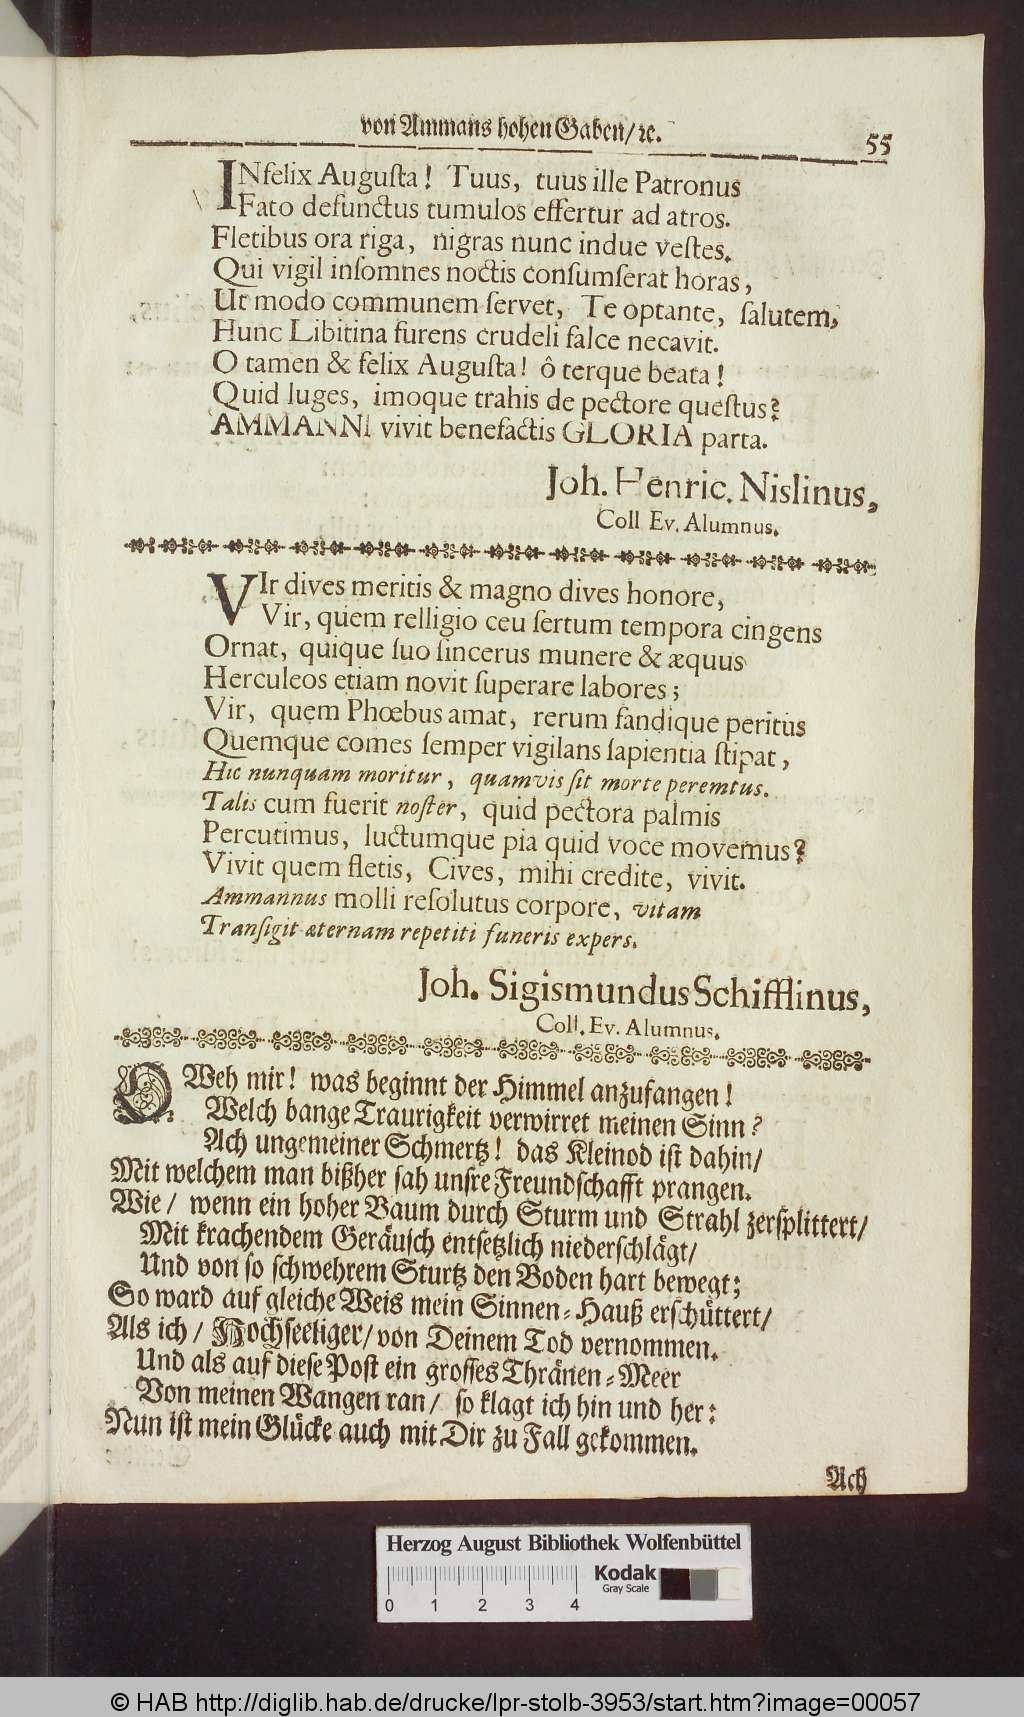 von Ammans hohen Gaben/ꝛc.
55
INfelix Auguſta! Tuus, tuus ille Patronus
Fato defunctus tumulos effertur ad atros.
Fletibus ora riga, nigras nunc indue veſtes.
Qui vigil inſomnes noctis conſumſerat horas,
Ut modo communem ſervet, Te optante, ſalutem,
Hunc Libitina furens crudeli falce necavit.
O tamen & felix Auguſta! ô terque beata!
Quid luges, imoque trahis de pectore queſtus?
AMMANNI vivit benefactis GLORIA parta.
Joh. Henric. Nislinus,
Coll Ev. Alumnus.
VIr dives meritis & magno dives honore,
Vir, quem relligio ceu ſertum tempora cingens
Ornat, quique ſuo ſincerus munere & æquus
Herculeos etiam novit ſuperare labores;
Vir, quem Phœbus amat, rerum fandique peritus
Quemque comes ſemper vigilans ſapientia ſtipat,
Hic nunquam moritur, quamvis ſit morte peremtus.
Talis cum fuerit noſter, quid pectora palmis
Percutimus, luctumque pia quid voce movemus?
Vivit quem fletis, Cives, mihi credite, vivit.
Ammannus molli reſolutus corpore, vitam
Tranſigit æternam repetiti funeris expers.
Joh. Sigismundus Schifflinus,
Coll. Ev. Alumnus.
O Weh mir! was beginnt der Himmel anzufangen!
Welch bange Traurigkeit verwirret meinen Sinn?
Ach ungemeiner Schmertz! das Kleinod ist dahin/
Mit welchem man bißher sah unsre Freundschafft prangen.
Wie/ wenn ein hoher Baum durch Sturm und Strahl zersplittert/
Mit krachendem Geräusch entsetzlich niederschlägt/
Und von so schwehrem Sturtz den Boden hart bewegt;
So ward auf gleiche Weis mein Sinnen-Hauß erschüttert/
Als ich/ Hochseeliger/ von Deinem Tod vernommen.
Und als auf diese Post ein grosses Thränen-Meer
Von meinen Wangen ran/ so klagt ich hin und her:
Nun ist mein Glücke auch mit Dir zu Fall gekommen.
Ach
Herzog August Bibliothek Wolfenbüttel
Kodak
Gray Scale
0 1 2 3 4
© HAB http://diglib.hab.de/drucke/lpr-stolb-3953/start.htm?image=00057